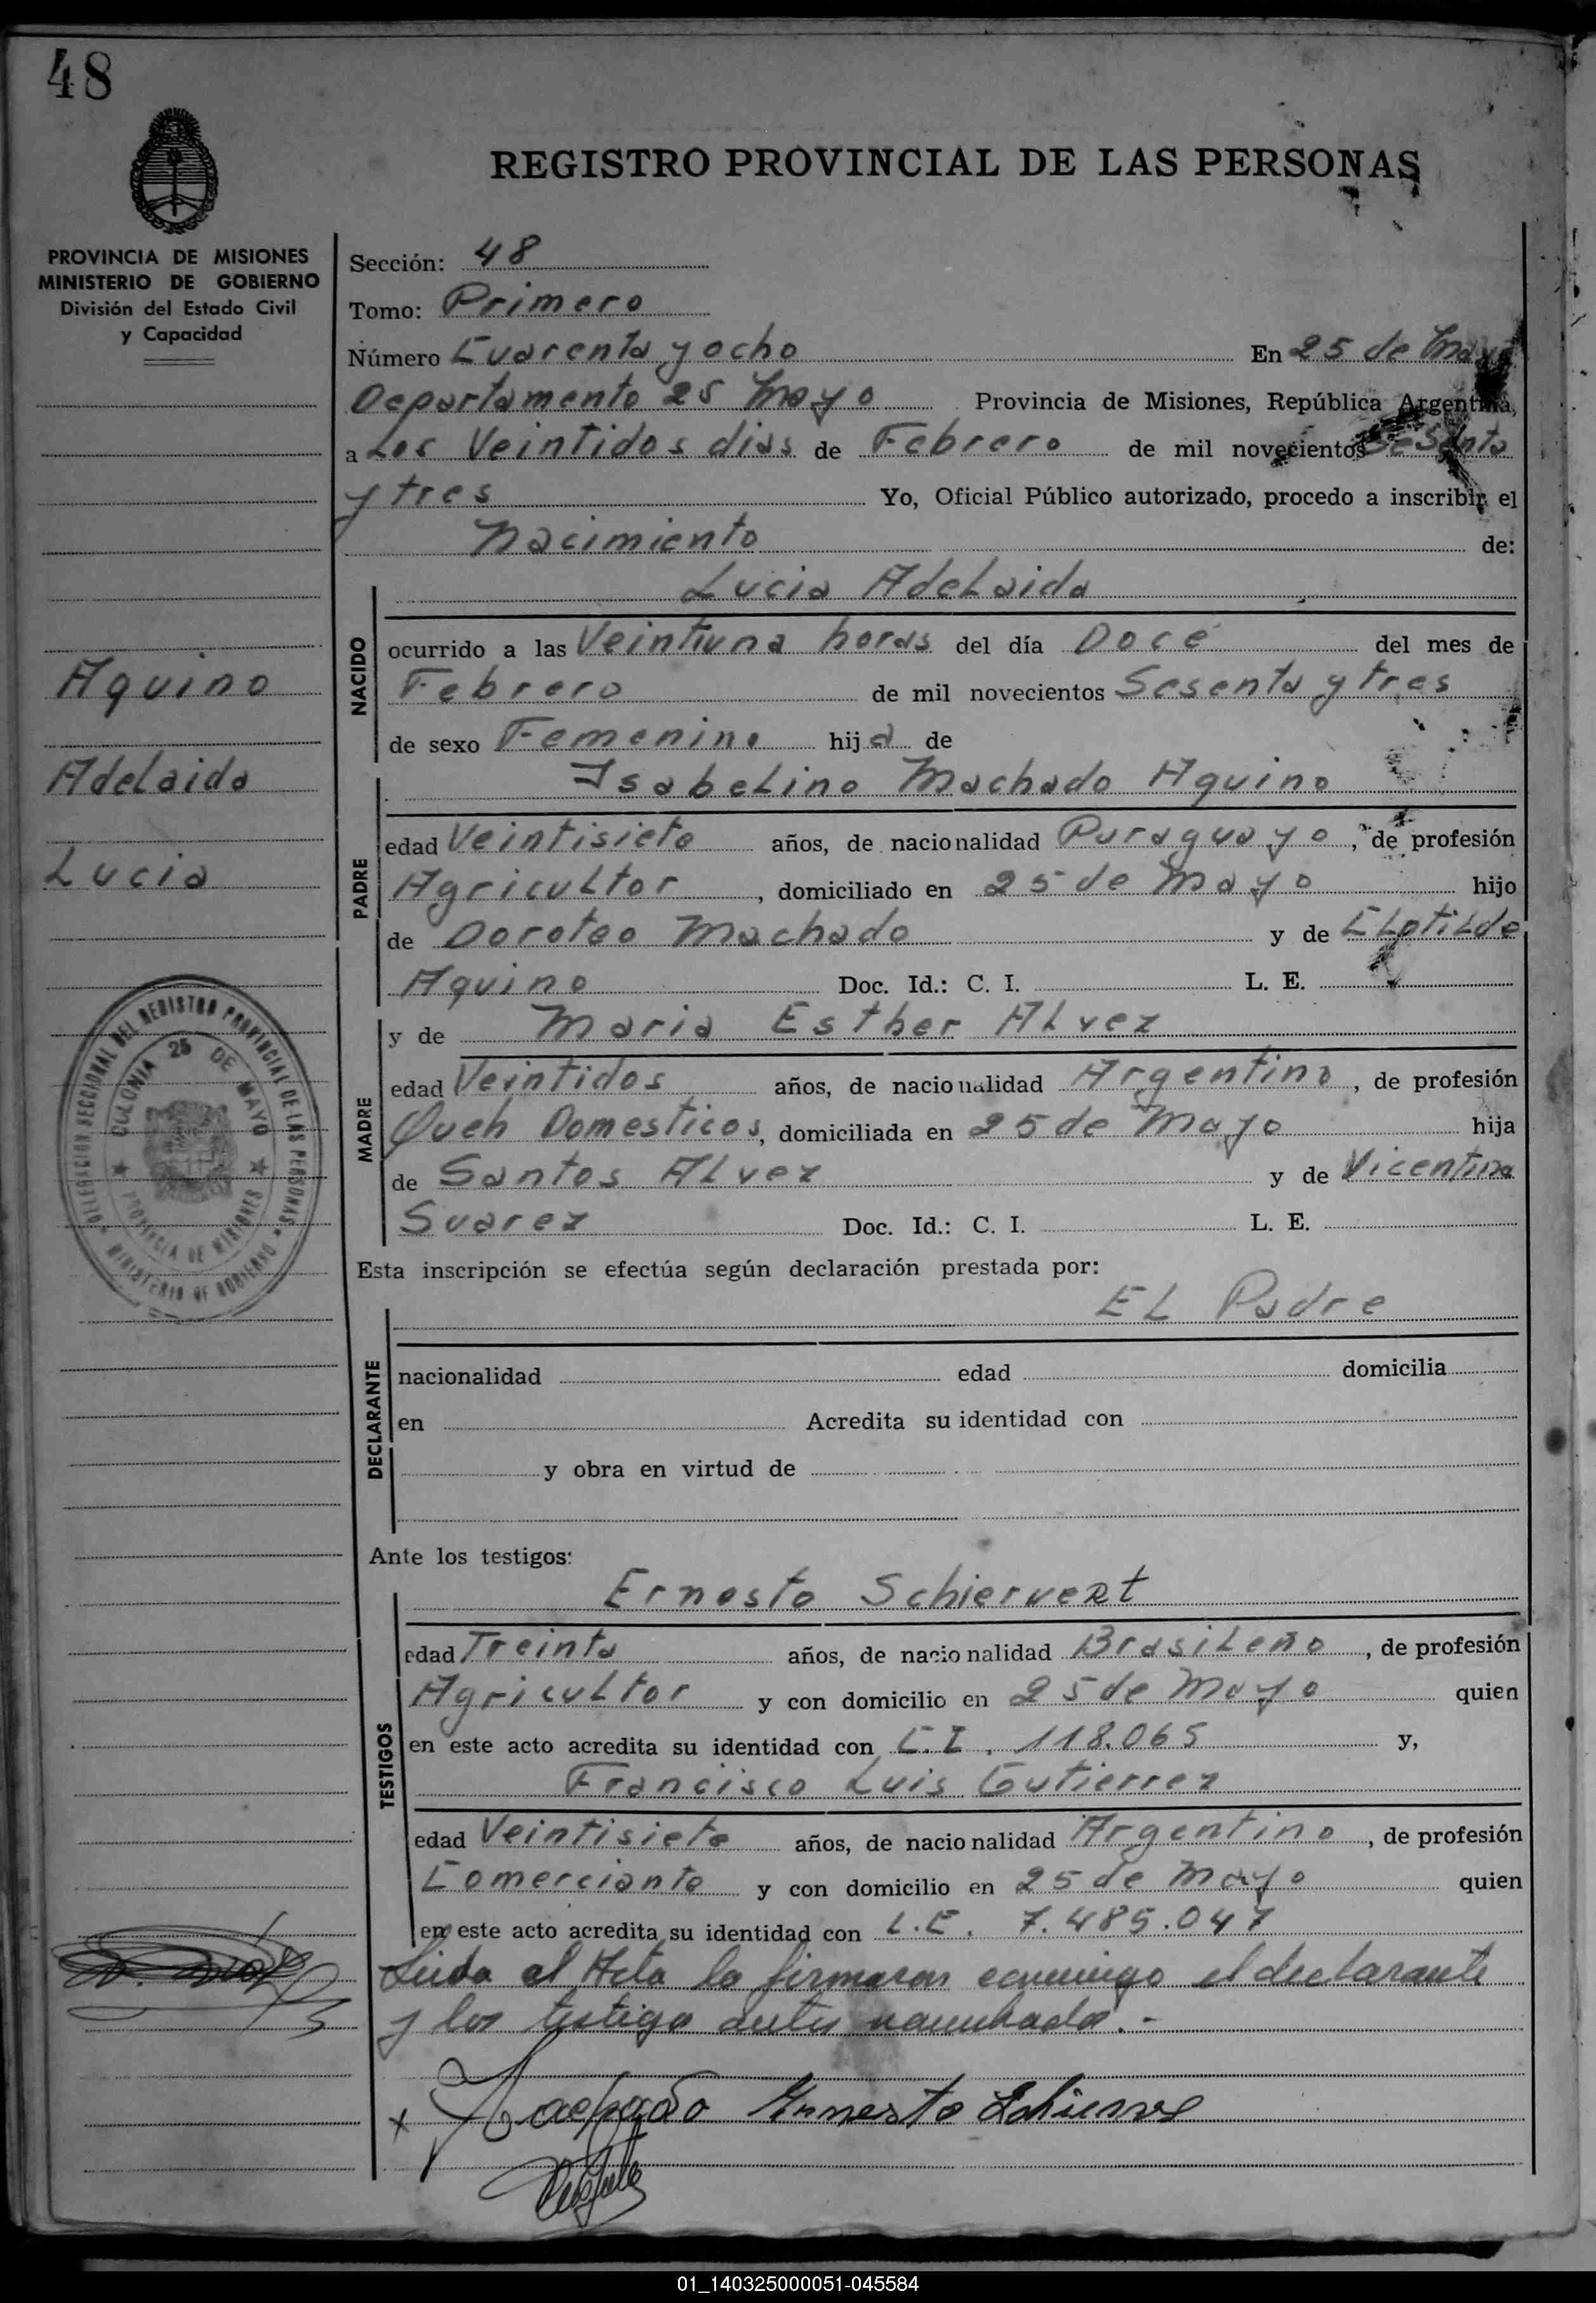 48
REGISTRO PROVINCIAL DE LAS PERSONAS
PROVINCIA DE MISIONES
MINISTERIO DE GOBIERNO
División del Estado Civil
y Capacidad
Sección: 48
Tomo: Primero
Número Cuarenta y ocho En 25 de Mayo
Departamento 25 Mayo Provincia de Misiones, República Argentina,
a Los Veintidos dias de Febrero de mil novecientos Sesenta
y tres Yo, Oficial Público autorizado, procedo a inscribir el
Nacimiento de:
Lucia Adelaida
NACIDO
ocurrido a las Veintiuna horas del día Doce del mes de
Febrero de mil novecientos Sesenta y tres
de sexo Femenino hija de
Aquino
Adelaida
Lucia
Isabelino Machado Aquino
PADRE
edad Veintisiete años, de nacionalidad Paraguayo, de profesión
Agricultor, domiciliado en 25 de Mayo hijo
de Doroteo Machado y de Clotilde
Aquino Doc. Id.: C. I. L. E.
y de Maria Esther Alvez
MADRE
edad Veintidos años, de nacionalidad Argentina, de profesión
Queh Domesticos, domiciliada en 25 de Mayo hija
de Santos Alvez y de Vicentina
Suarez Doc. Id.: C. I. L. E.
DELEGACION SECCIONAL DEL REGISTRO PROVINCIAL DE LAS PERSONAS
COLONIA 25 DE MAYO
PROVINCIA DE MISIONES
MINISTERIO DE GOBIERNO
Esta inscripción se efectúa según declaración prestada por:
El Padre
DECLARANTE
nacionalidad edad domicilia
en Acredita su identidad con
y obra en virtud de
Ante los testigos:
Ernesto Schiervert
TESTIGOS
edad Treinta años, de nacionalidad Brasileño, de profesión
Agricultor y con domicilio en 25 de Mayo quien
en este acto acredita su identidad con C.I. 118.065 y,
Francisco Luis Gutierrez
edad Veintisiete años, de nacionalidad Argentino, de profesión
Comerciante y con domicilio en 25 de Mayo quien
en este acto acredita su identidad con L.E. 7.485.047
Leida el Acta la firmaran conmigo el declarante
y los testigo antes nombrado.-
x Ernesto
01_140325000051-045584